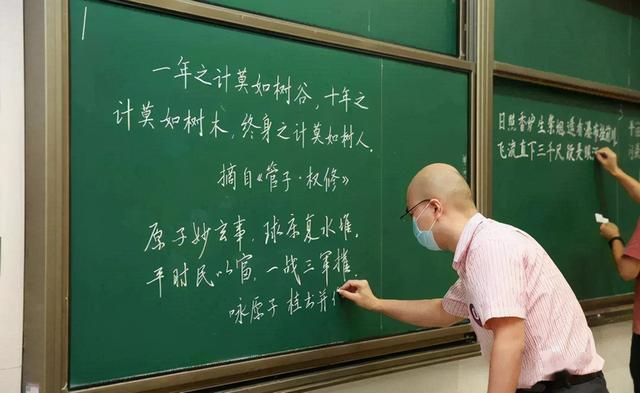 1
一年之计莫如树谷，十年之
计莫如树木，终身之计莫如树人.
摘自《管子·权修》
原子妙玄事，球床复水堆.
平时民以富，一战三军摧.
咏原子
日照香炉生紫烟遥看瀑布挂前川
飞流直下三千尺疑是银